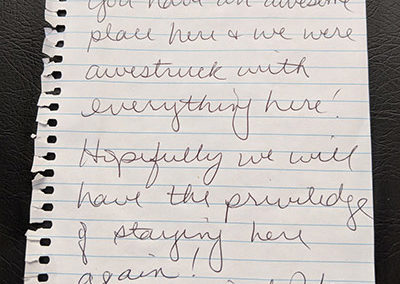 You have an awesome
place here & we were
awestruck with
everything here!
Hopefully we will
have the priviledge
of staying here
again!